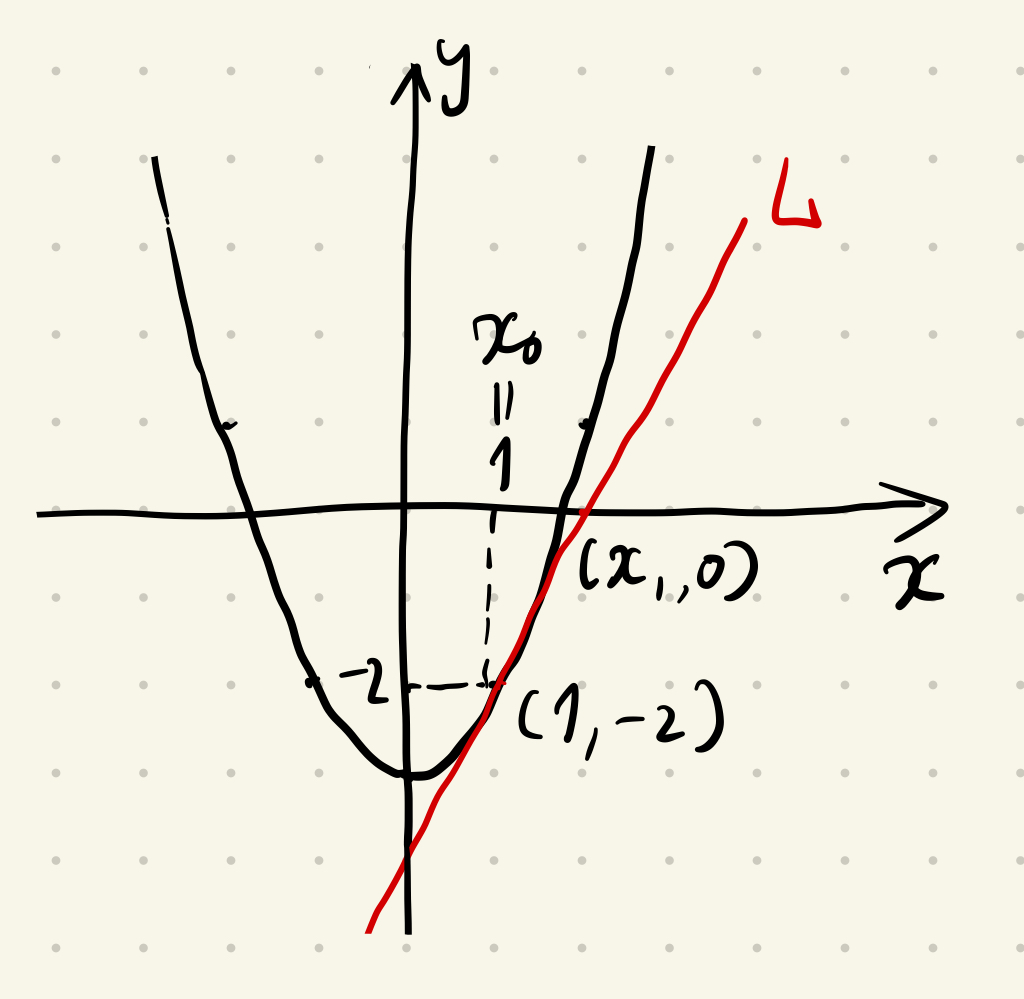 y
L
x₀
=
1
(x₁,0)
x
-2
(1,-2)